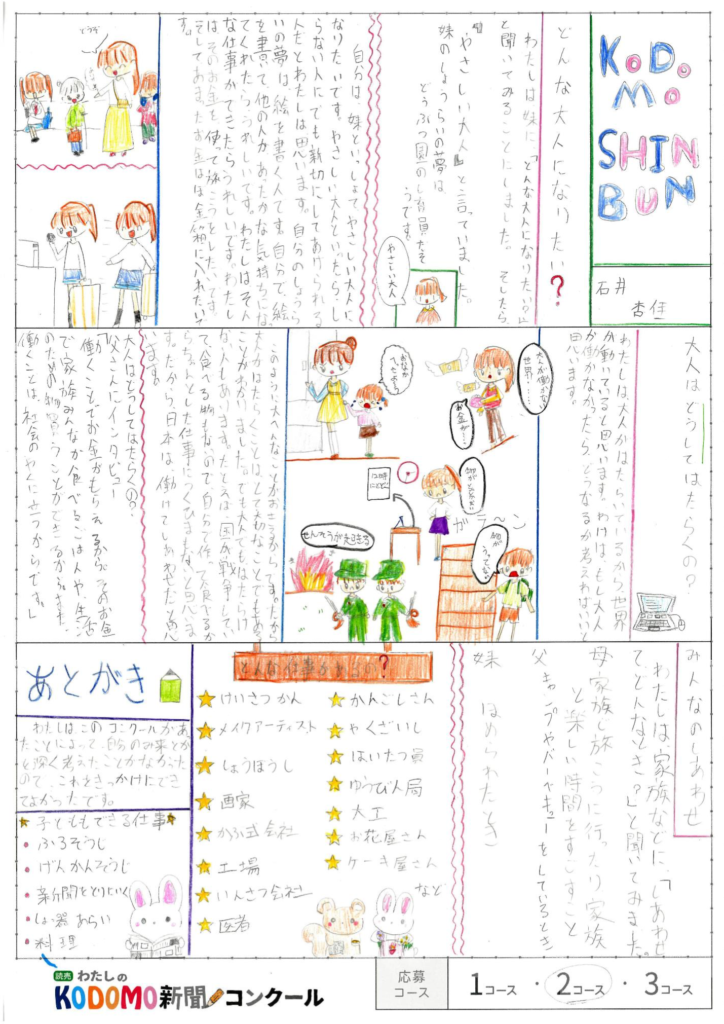 KODOMO
SHINBUN
石井
杏佳
どんな大人になりたい?
わたしは妹に「どんな大人になりたい?」
と聞いてみることにしました。そしたら
"やさしい大人"と言っていました。
妹のしょうらいの夢は
どうぶつ園の
うです。
やさしい大人
自分は、妹といっしょで、やさしい大人に
なりたいです。やさしい大人といったら、し
らない人にでも親切にしてあげられる
人だとわたしは思います。自分のしょうら
いの夢は、絵を書く人です。自分で、絵
を書いて、他の人が、あたたかな気持ちにな
てくれたらうれしいです。わたしはそん
な仕事ができたらうれしいです。わたし
は、そのお金を使って旅こうをしたいです。
そしてあまったお金は、ちょ金箱に入れたいで
す。
どうぞ
大人はどうしてはたらくの?
わたしは大人がはたらいているから世界
が働いていると思います。わけは、もし大人
が働かなかったら、どうなるか考えればいいと
思います。
大人が働かない
世界…
お金が…
おなか
すいたよ…
12時
物がたりない
ガラ〜ン
物が
うってない
せんそうがおきる
このような大へんなことがおきるからです。だから
大人はたらくことはとても大切なことである
ことがわかりました。
大人はどうしてはたらくの?
お父さんにインタビュー
「働くことでお金がもらえるから、そのお金
で家族みんなが食べるごはんや生活
のための物を買うことができるからです。
働くことは、社会のやくに立つからです。」
みんなのしあわせ
わたしは家族などに「しあわせ
てどんなとき?」と聞いてみました。
母 家族で旅こうに行ったり家族
と楽しい時間をすごすこと
父 キャンプやバーベキューをしているとき
妹 ほめられたとき
どんな仕事がある?
かんごしさん
やくざいし
はいたつ員
ゆうびん局
大工
お花屋さん
ケーキ屋さん
など
けいさつかん
メイクアーティスト
しょうぼうし
画家
かぶ式会社
工場
いんさつ会社
医者
あとがき
わたしはこのコンクールがあ
ったことによって、自分のみ来とか
を深く考えたことがなかった
ので、これをきっかけにでき
てよかったです。
子どももできる仕事
ふろそうじ
げんかんそうじ
新聞をとりにいく
しょっ器あらい
料理
読売 わたしの
KODOMO新聞コンクール
応募
コース
1コース・2コース・3コース